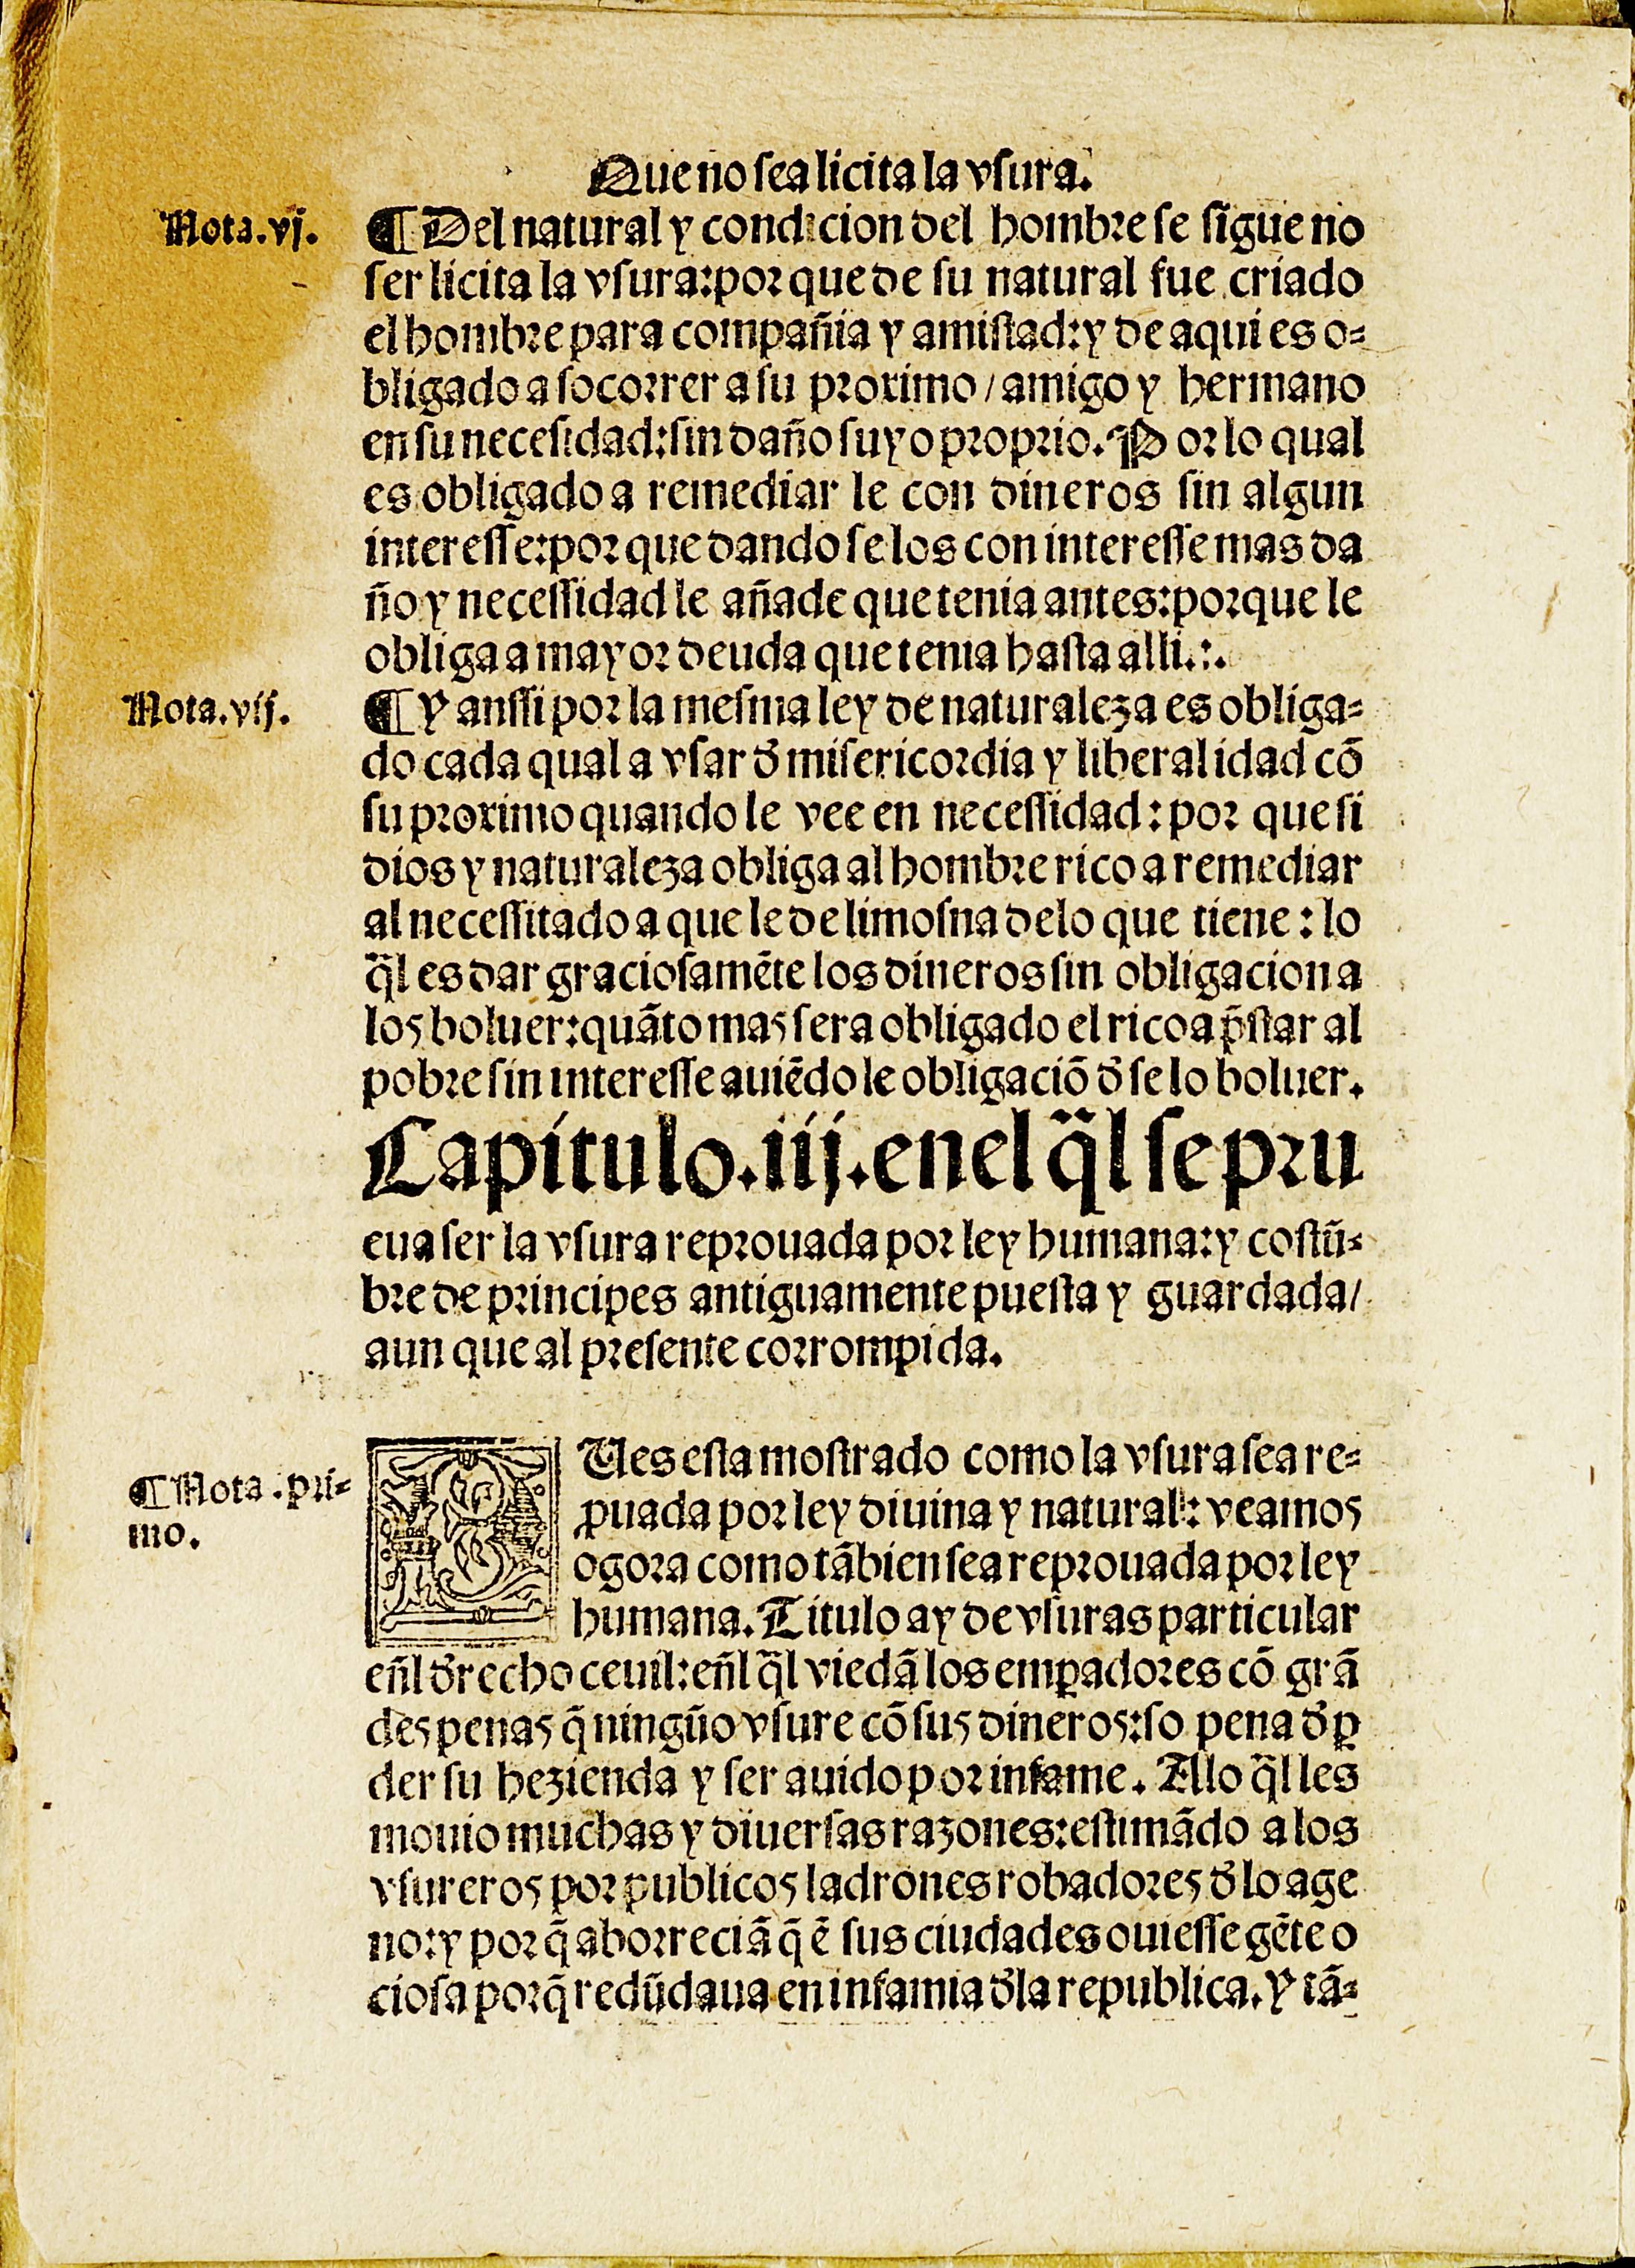 Que no sea licita la vsura.
Nota.vj.
¶ Del natural y condicion del hombre se sigue no
ser licita la vsura:por que de su natural fue criado
el hombre para compañia y amistad:y de aqui es o-
bligado a socorrer a su proximo/amigo y hermano
en su necesidad:sin daño suyo proprio. Por lo qual
es obligado a remediar le con dineros sin algun
interesse:por que dando se los con interesse mas da
ño y necessidad le añade que tenia antes:porque le
obliga a mayor deuda que tenia hasta alli.:.
Nota.vij.
¶ Y anssi por la mesma ley de naturaleza es obliga-
do cada qual a vsar d̓ misericordia y liberalidad cõ
su proximo quando le vee en necessidad:por que si
dios y naturaleza obliga al hombre rico a remediar
al necessitado a que le de limosna delo que tiene:lo
q̃l es dar graciosamẽte los dineros sin obligacion a
los boluer:quãto mas sera obligado el rico a p̃star al
pobre sin interesse auiẽdo le obligaciõ d̓ se lo boluer.
Capitulo.iij.enel q̃l se pru
eua ser la vsura reprouada por ley humana:y costũ-
bre de principes antiguamente puesta y guardada/
aun que al presente corrompida.
¶ Nota.pri-
mo.
PUes esta mostrado como la vsura sea re-
ꝓuada por ley diuina y natural:veamos
ogora como tãbien sea reprouada por ley
humana. Titulo ay de vsuras particular
eñl d̓recho ceuil:eñl q̃l viedã los emꝑadores cõ grã
des penas q̃ ningũo vsure cõ sus dineros:so pena d̓ ꝑ
der su hezienda y ser auido por infame. Allo q̃l les
mouio muchas y diuersas razones:estimãdo a los
vsureros por publicos ladrones robadores d̓ lo age
no:y por q̃ aborreciã q̃ ẽ sus ciudades ouiesse gẽte o
ciosa porq̃ redũdaua en infamia d̓la republica. Y tã-